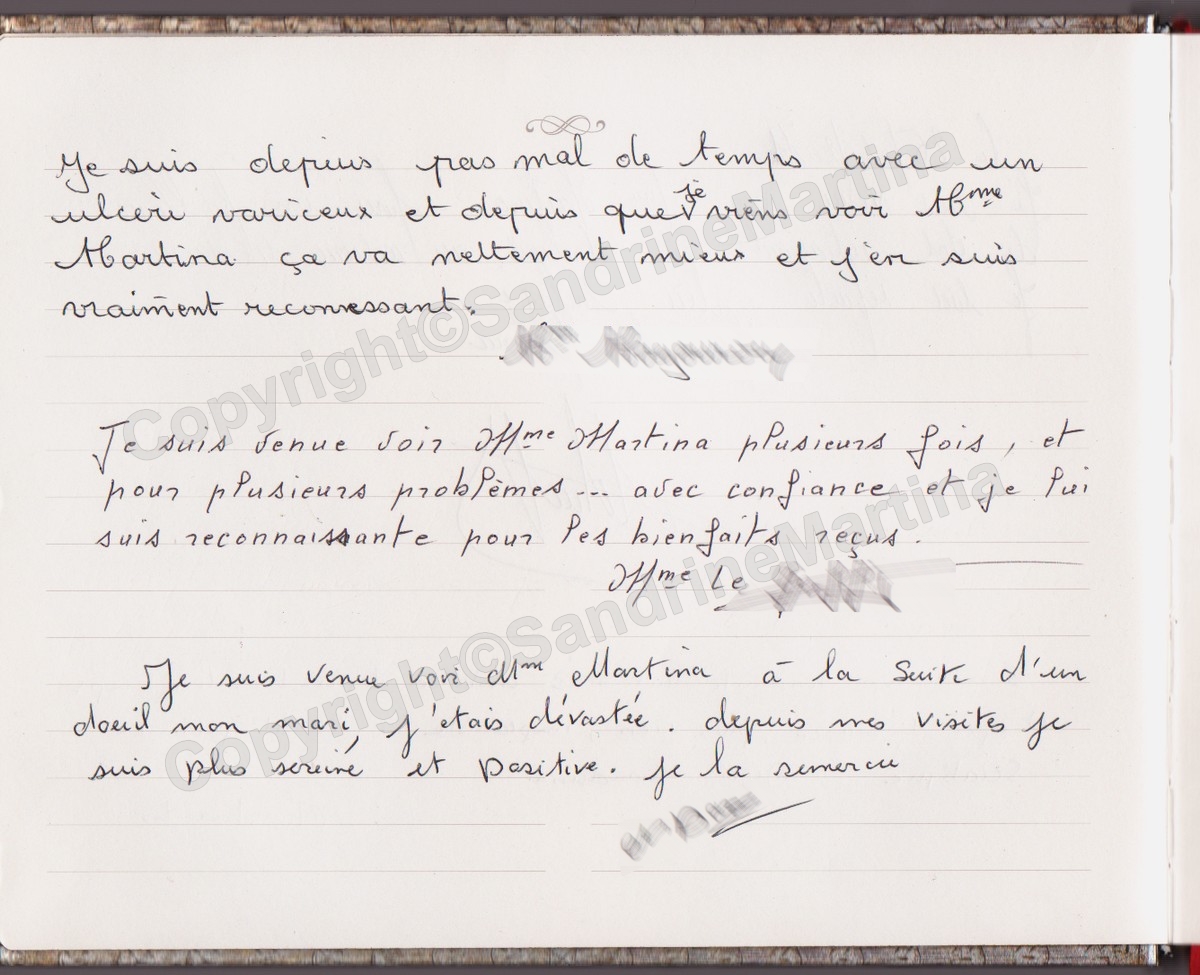 Je suis depuis pas mal de temps avec un
ulcère variceux et depuis que je viens voir Mme
Martina ça va nettement mieux et j'en suis
vraiment reconnessant.
Je suis venue voir Mme Martina plusieurs fois, et
pour plusieurs problèmes... avec confiance et je lui
suis reconnaissante pour les bienfaits reçus.
Mme Le
Je suis venue voir Mme Martina à la suite d'un
doeuil mon mari, j'étais dévastée. depuis mes visites je
suis plus sereine et positive. je la remercie
Copyright©SandrineMartina
Copyright©SandrineMartina